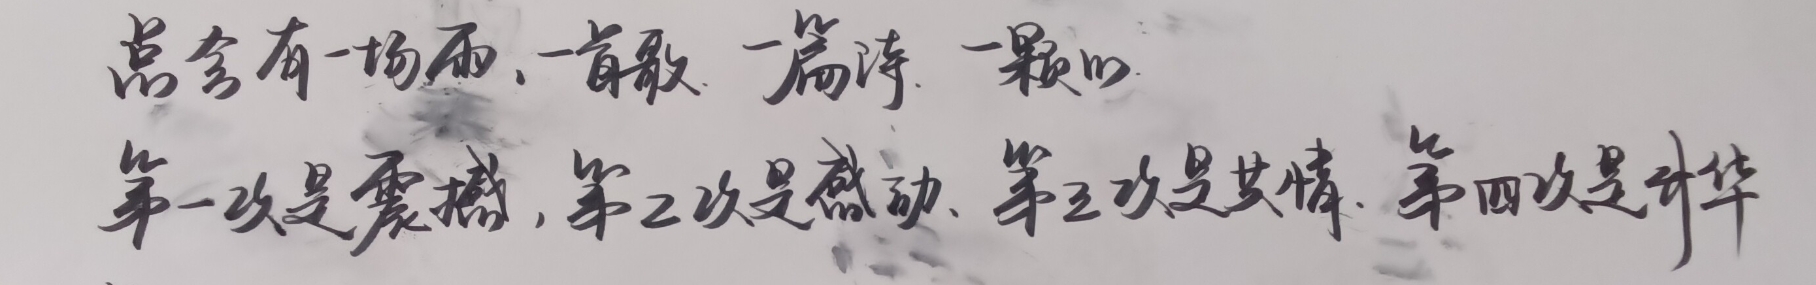 总会有一场雨、一首歌、一篇诗、一颗心.
第一次是震撼,第二次是感动、第三次是共情、第四次是升华